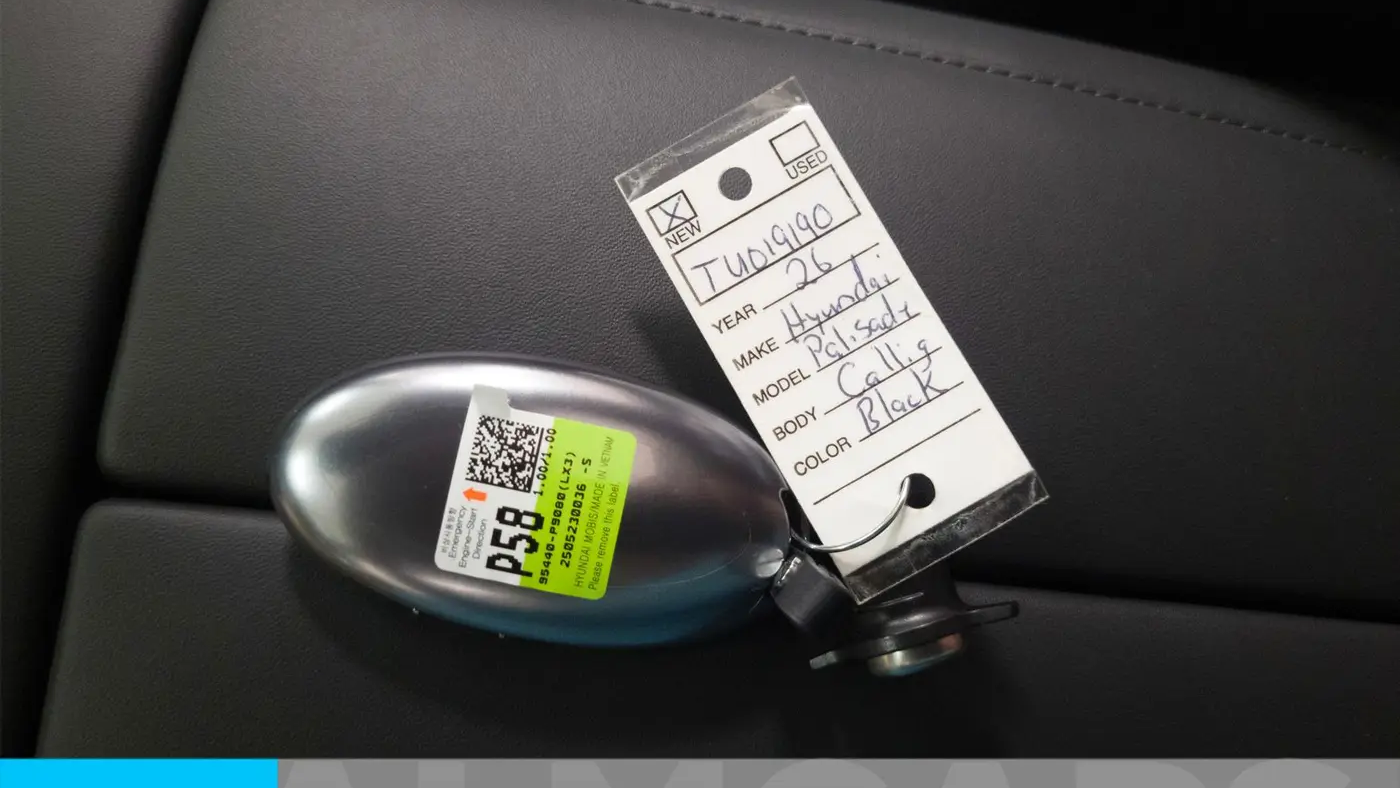 USED
X
NEW
TU019190
YEAR 26
MAKE Hyundai
MODEL Palisade
BODY Callig
COLOR Black
비상시동방향
Emergency
Engine-Start
Direction
P58
1.00/1.00
95440-P9080(LX3)
2505230036 -S
HYUNDAI MOBIS/MADE IN VIETNAM
Please remove this label.